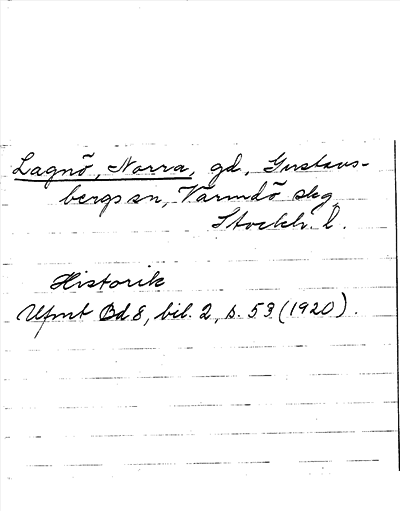 Lagnö, Norra, gd, Gustavs-
bergs sn, Värmdö skg
Stockh. l.
Historik
Ufmt Bd 8, bil. 2, s. 53 (1920).